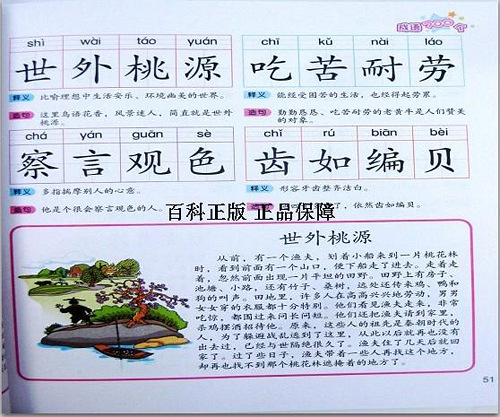 成语200个
shì wài táo yuán
世外桃源
释义 比喻理想中生活安乐、环境幽美的世界。
造句 这里鸟语花香,风景迷人,简直就是世外
桃源。
chī kǔ nài láo
吃苦耐劳
释义 能经受困苦的生活,也经得起劳累。
造句 勤勤恳恳、吃苦耐劳的老黄牛是人们赞美
的对象。
chá yán guān sè
察言观色
释义 多指揣摩别人的心意。
造句 他是个很会察言观色的人。
chǐ rú biān bèi
齿如编贝
释义 形容牙齿整齐洁白。
了,依然齿如编贝。
百科正版 正品保障
世外桃源
从前,有一个渔夫,划着小船来到一片桃花林
时,看到前面有一个山口,便下船走了进去。走着走
着,忽然前面出现一片平坦的田野。田野上有房子、
池塘、小路,还有竹子、桑树,远处还传来鸡、鸭和
狗的叫声。田地里,许多人在高高兴兴地劳动,男男
女女穿的衣服都十分特别。他们看见渔夫走来,非常
吃惊,都围过来问长问短。他们还把渔夫请到家里,
杀鸡摆酒招待他。原来,这些人的祖先是秦朝时代的
人,为了躲避战乱逃到了这里,从此以后就再也没有
出去过,已经与世隔绝很久了。渔夫住了几天后就回
家了。过了些日子,渔夫带着一些人再找这个地方,
却再也找不到那个桃花林遮掩着的地方了。
51